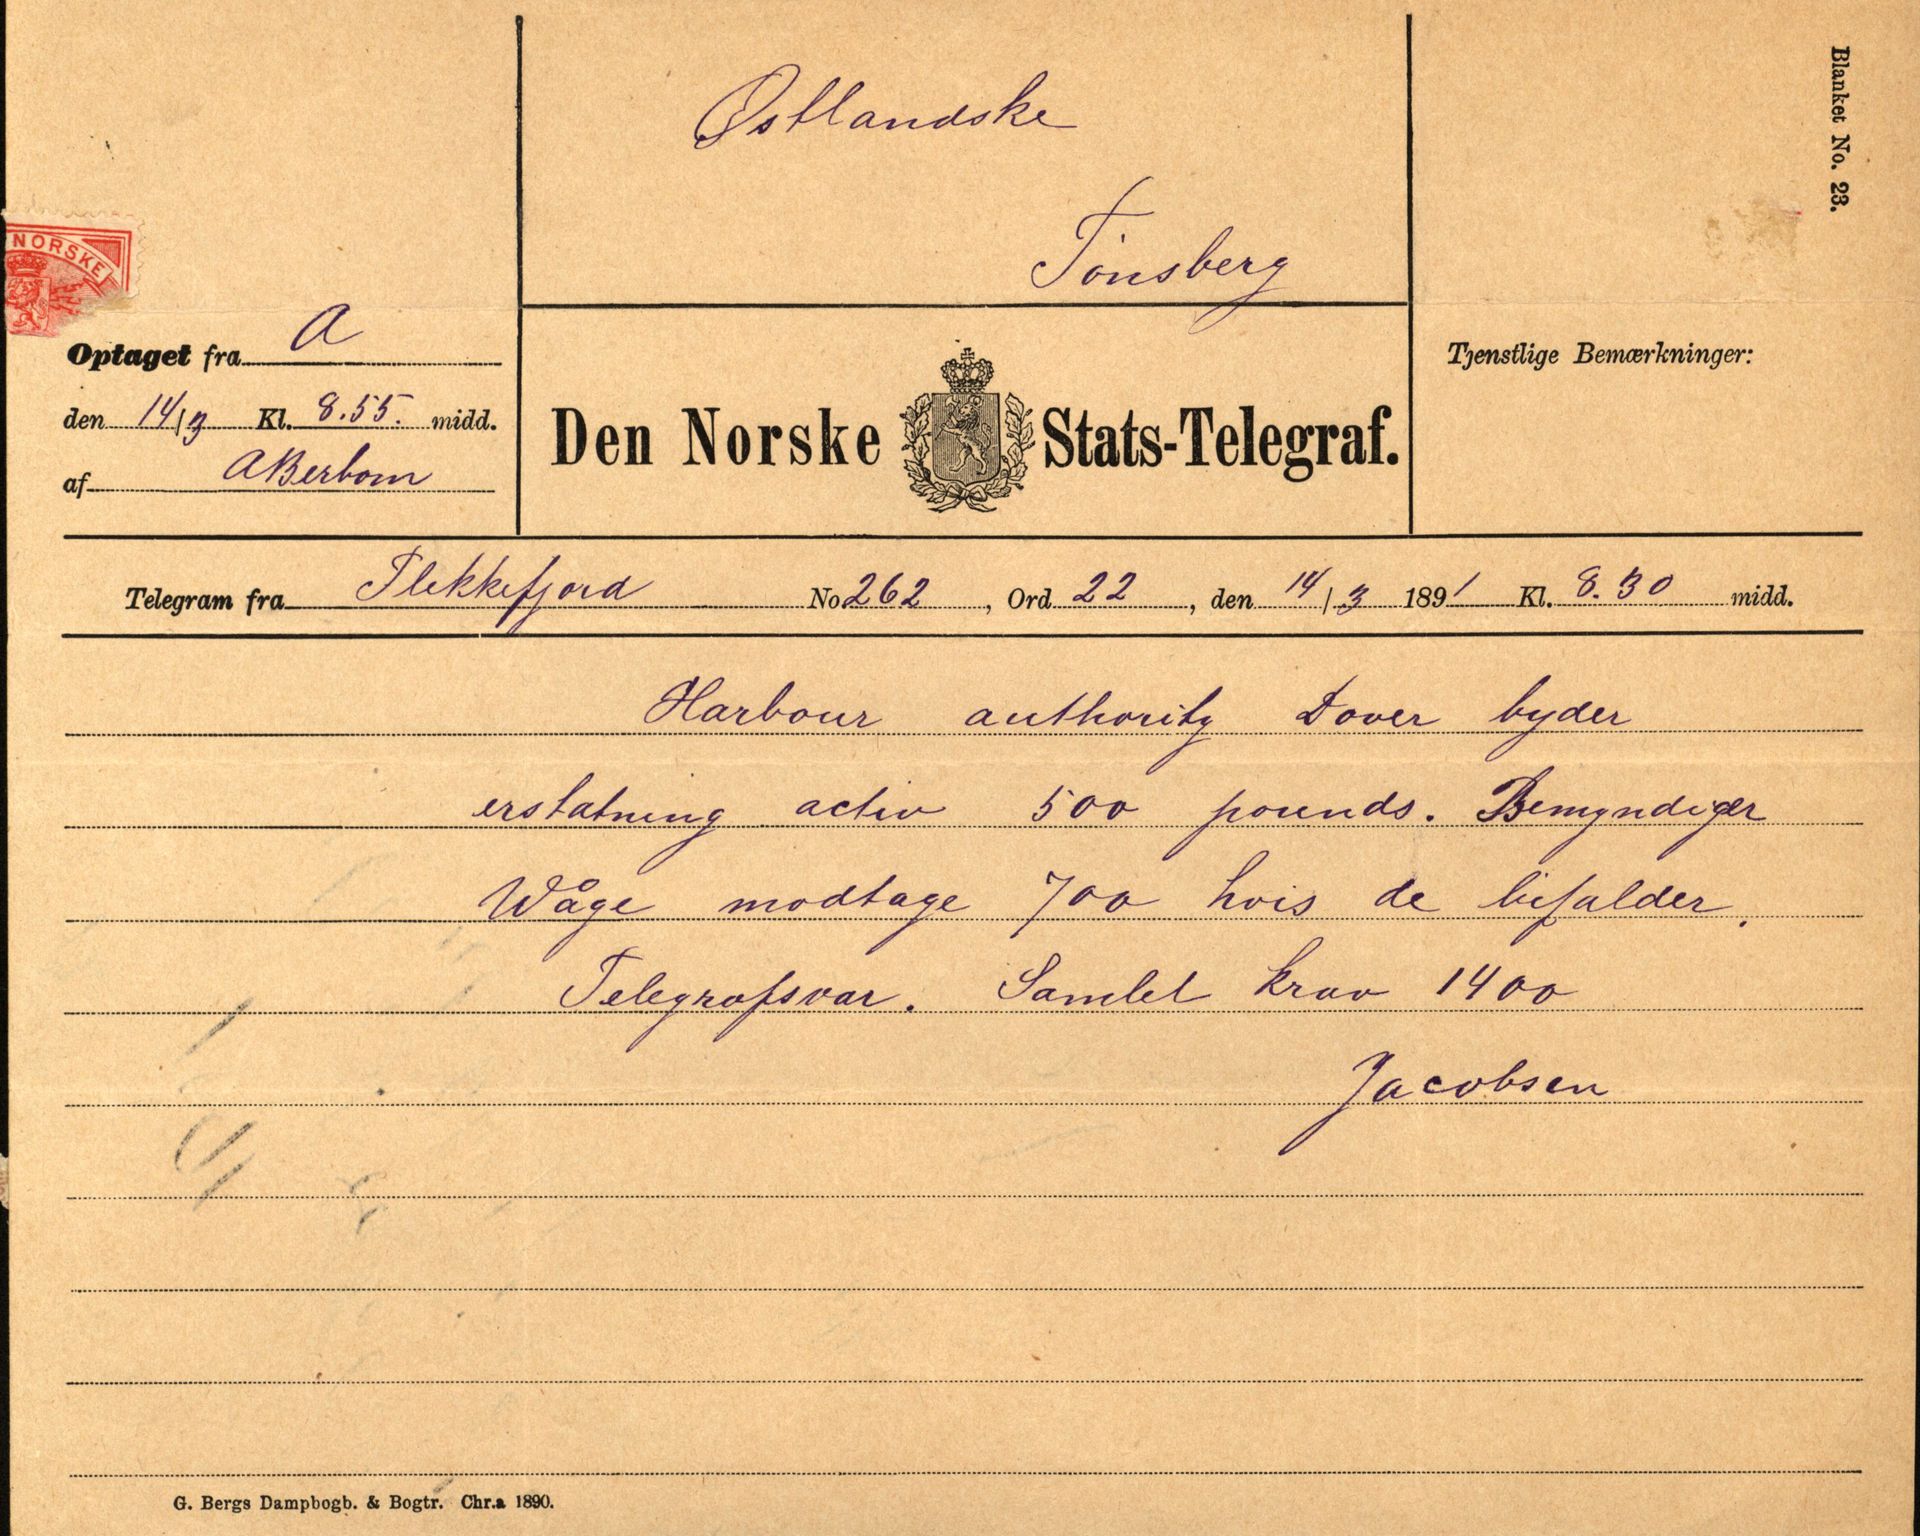 Østlandske
Tönsberg
Blanket No. 23.
NORSKE
Optaget fra A
den 14/3 Kl. 8.55. midd.
af ABerbom
Den Norske Stats-Telegraf.
Tjenstlige Bemærkninger:
Telegram fra Flekkefjord No 262, Ord 22, den 14/3 1891 Kl. 8.30 midd.
Harbour authority Dover byder
erstatning activ 500 pounds. Bemyndiger
Våge modtage 700 hvis de bifalder.
Telegrafsvar. Samlet krav 1400
Jacobsen
G. Bergs Dampbogb. & Bogtr. Chr.a 1890.